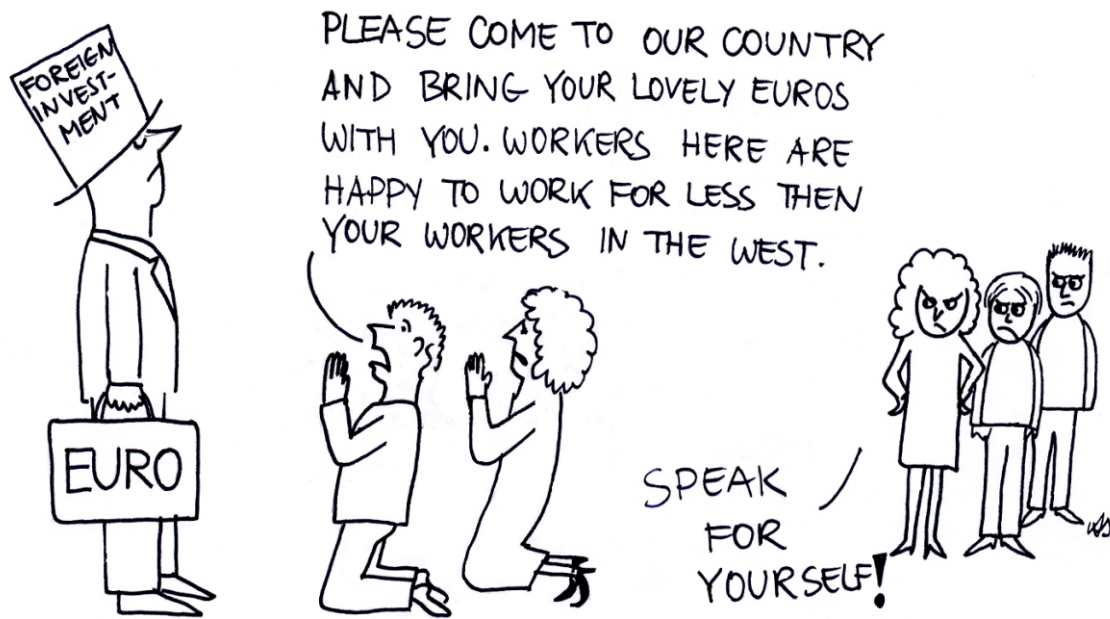 FOREIGN
INVEST-
MENT
PLEASE COME TO OUR COUNTRY
AND BRING YOUR LOVELY EUROS
WITH YOU. WORKERS HERE ARE
HAPPY TO WORK FOR LESS THEN
YOUR WORKERS IN THE WEST.
EURO
SPEAK
FOR
YOURSELF!